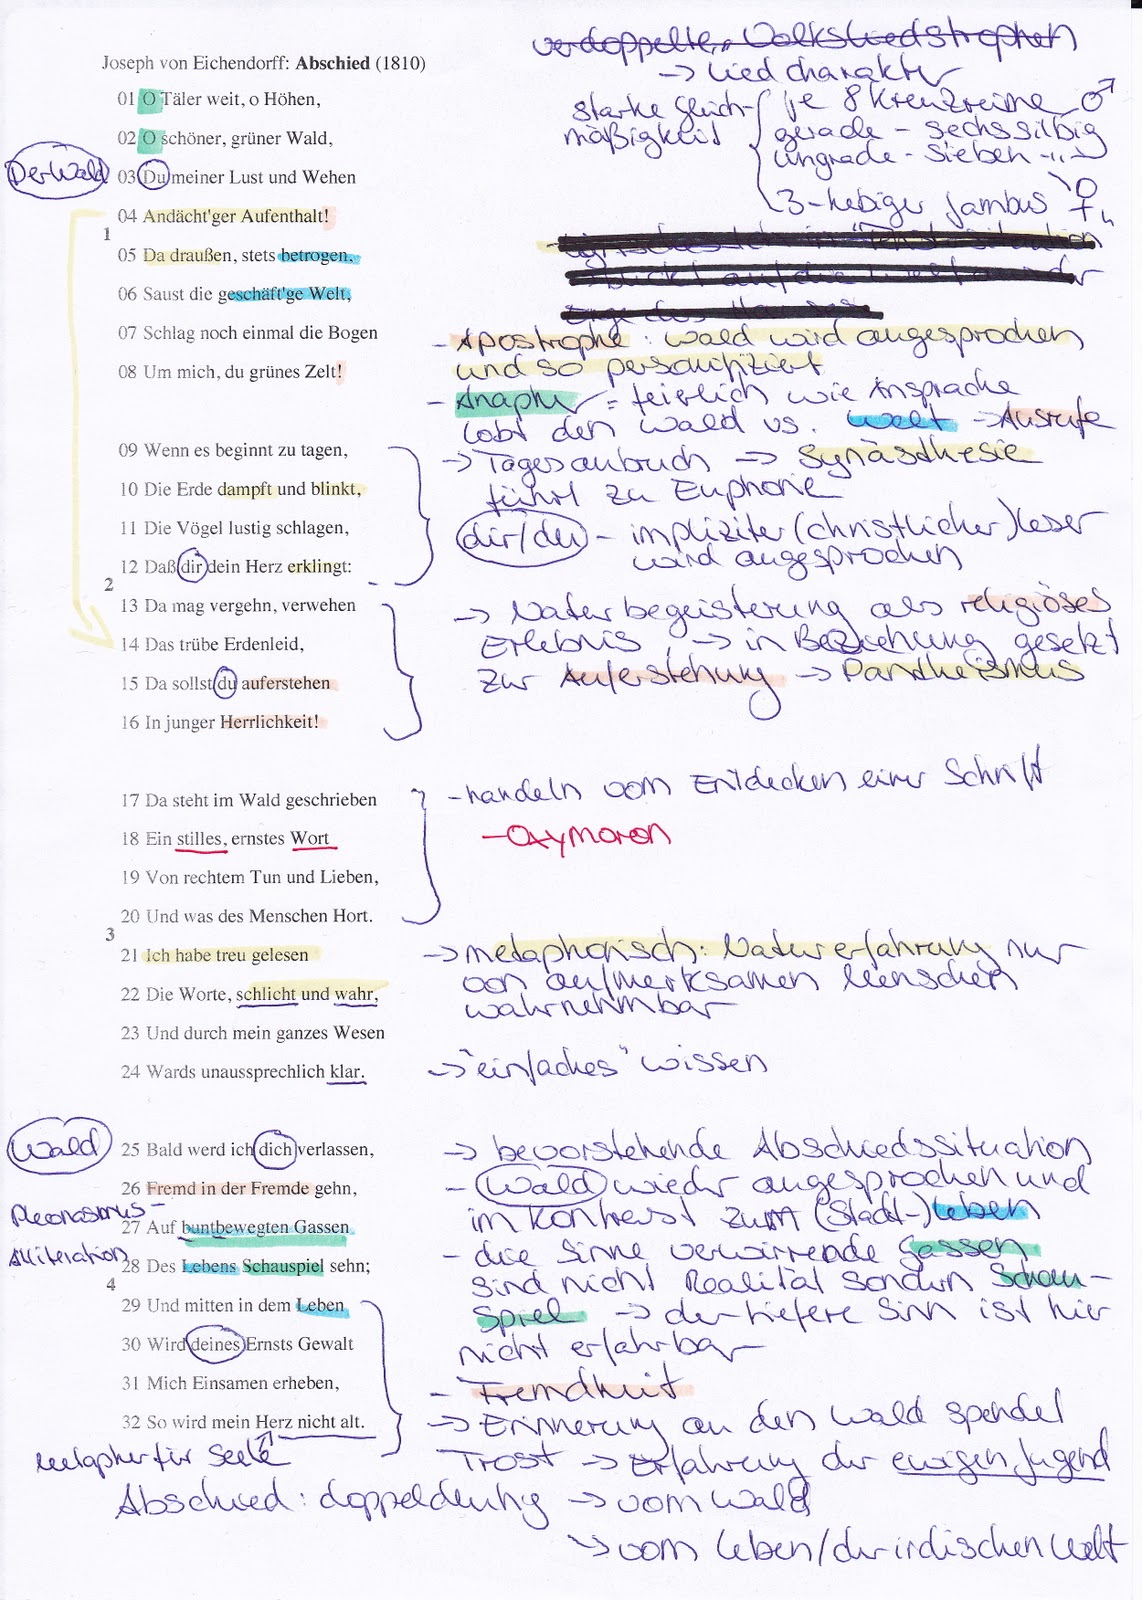 verdoppelte, Volksliedstrophen
Joseph von Eichendorff: Abschied (1810)
→ Liedcharakter
01 O Täler weit, o Höhen,
starke Gleich- je 8 Kreuzreime ♂
mäßigkeit gerade - sechssilbig
02 O schöner, grüner Wald,
ungrade - sieben -"-
Der Wald
03 Du meiner Lust und Wehen
3-hebiger Jambus ♀
04 Andächt'ger Aufenthalt!
1
05 Da draußen, stets betrogen,
06 Saust die geschäft'ge Welt,
07 Schlag noch einmal die Bogen
- Apostrophe: Wald wird angesprochen
und so personifiziert
08 Um mich, du grünes Zelt!
- Anapher = feierlich wie Ansprache
lobt den Wald vs. Welt → Ausrufe
09 Wenn es beginnt zu tagen,
→ Tagesanbruch → Synästhesie
führt zu Euphonie
10 Die Erde dampft und blinkt,
11 Die Vögel lustig schlagen,
dir/du - impliziter (christlicher) Leser
wird angesprochen
12 Daß dir dein Herz erklingt:
2
13 Da mag vergehn, verwehen
→ Naturbegeisterung als religiöses
Erlebnis, → in Beziehung gesetzt
14 Das trübe Erdenleid,
zur Auferstehung → Pantheismus
15 Da sollst du auferstehen
16 In junger Herrlichkeit!
17 Da steht im Wald geschrieben
- handeln vom Entdecken einer Schrift
18 Ein stilles, ernstes Wort
- Oxymoron
19 Von rechtem Tun und Lieben,
20 Und was des Menschen Hort.
3
21 Ich habe treu gelesen
→ metaphorisch: Naturerfahrung nur
von aufmerksamen Menschen
22 Die Worte, schlicht und wahr,
wahrnehmbar
23 Und durch mein ganzes Wesen
24 Wards unaussprechlich klar.
→ "einfaches" wissen
Wald
25 Bald werd ich dich verlassen,
→ bevorstehende Abschiedssituation
26 Fremd in der Fremde gehn,
- Wald wieder angesprochen und
Pleonasmus -
im Kontrast zum (Stadt-)Leben
27 Auf buntbewegten Gassen
Alliteration
- die Sinne verwirrende Gassen
28 Des Lebens Schauspiel sehn;
sind nicht Realität sondern Schau-
4
29 Und mitten in dem Leben
spiel → der tiefere Sinn ist hier
nicht erfahrbar
30 Wird deines Ernsts Gewalt
31 Mich Einsamen erheben,
- Fremdheit
32 So wird mein Herz nicht alt.
→ Erinnerung an den Wald spendet
Trost → Erfahrung der ewigen Jugend
Metapher für Seele
Abschied: doppeldeutig → vom Wald
→ vom Leben/der irdischen Welt